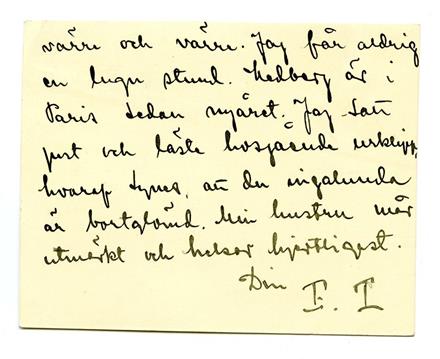 värre och värre. Jag får aldrig
en lugn stund. Hedberg är i
Paris sedan nyåret. Jag satt
just och läste hosgående urklipp,
hvaraf synes, att du ingalunda
är bortglömd. Min hustru mår
utmärkt och helsar hjertligast.
Din
F. I